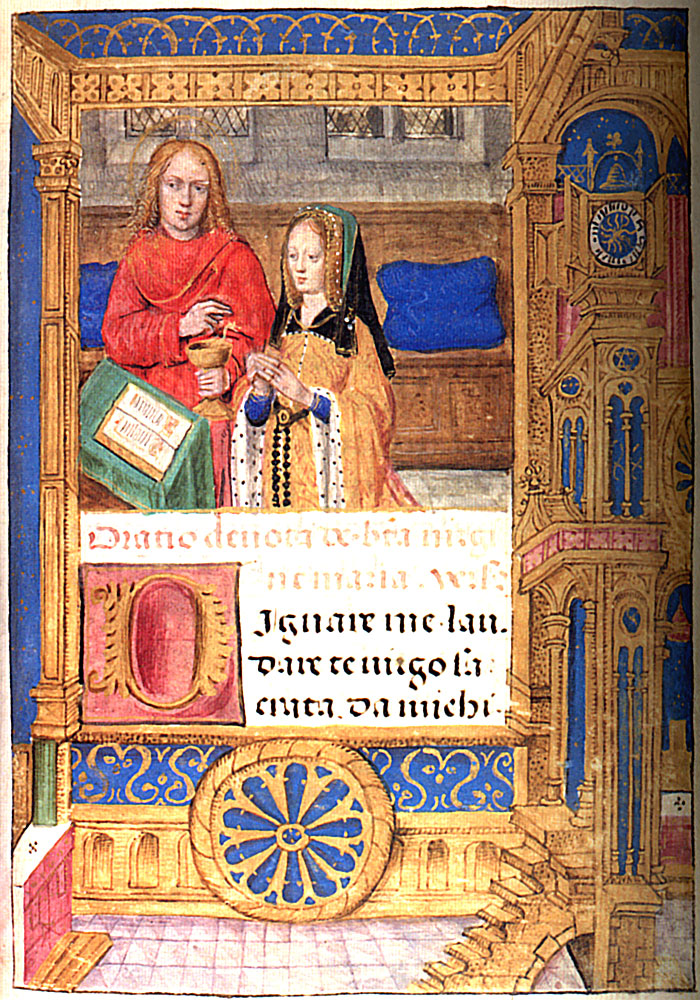 Oratio devota de bta virgi
ne maria. Vers9
Dignare me lau.
dare te virgo sa
crata. da michi.